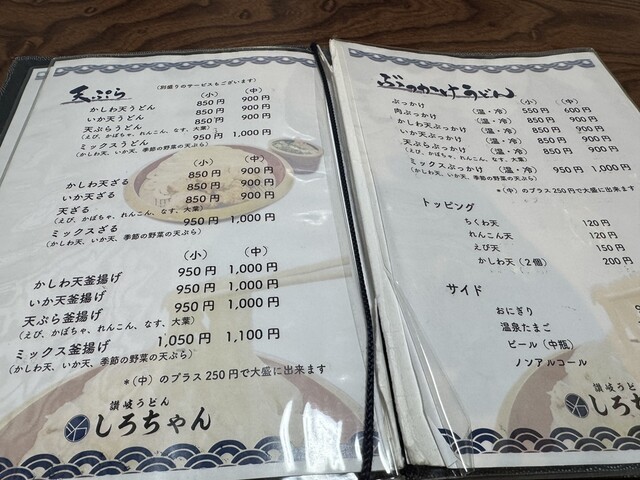 天ぷら
(別盛りのサービスもございます)
(小) (中)
かしわ天うどん 850円 900円
いか天うどん 850円 900円
天ぷらうどん 850円 900円
(えび、かぼちゃ、れんこん、なす、大葉)
ミックスうどん 950円 1,000円
(かしわ天、いか天、季節の野菜の天ぷら)
(小) (中)
かしわ天ざる 850円 900円
いか天ざる 850円 900円
天ざる 850円 900円
(えび、かぼちゃ、れんこん、なす、大葉)
ミックスざる 950円 1,000円
(かしわ天、いか天、季節の野菜の天ぷら)
(小) (中)
かしわ天釜揚げ 950円 1,000円
いか天釜揚げ 950円 1,000円
天ぷら釜揚げ 950円 1,000円
(えび、かぼちゃ、れんこん、なす、大葉)
ミックス釜揚げ 1,050円 1,100円
(かしわ天、いか天、季節の野菜の天ぷら)
*(中)のプラス250円で大盛に出来ます
讃岐うどん
しろちゃん
ぶっかけうどん
(小) (中)
ぶっかけ (温・冷) 550円 600円
肉ぶっかけ (温・冷) 850円 900円
かしわ天ぶっかけ (温・冷) 850円 900円
いか天ぶっかけ (温・冷) 850円 900円
天ぷらぶっかけ (温・冷) 850円 900円
(えび、かぼちゃ、れんこん、なす、大葉)
ミックスぶっかけ (温・冷) 950円 1,000円
(かしわ天、いか天、季節の野菜の天ぷら)
*(中)のプラス250円で大盛に出来ます
トッピング
ちくわ天 120円
れんこん天 120円
えび天 150円
かしわ天(2個) 200円
サイド
おにぎり
温泉たまご
ビール(中瓶)
ノンアルコール
讃岐うどん
しろちゃん